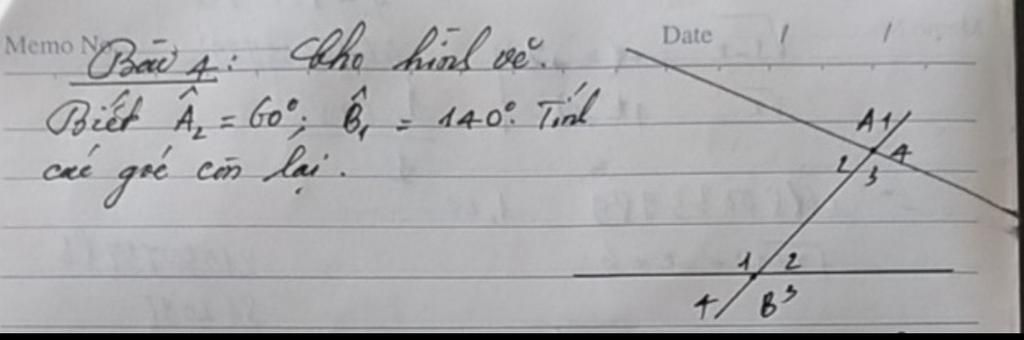 Memo No Date / /
Bài 4: Cho hình vẽ.
Biết Â₂ = 60°; B̂₁ = 140°. Tính
các góc còn lại.
A 1
2 4
3
1 2
4 B 3